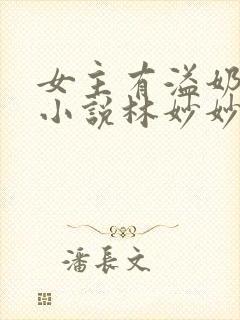 女主有溢奶
小說林妙妙
潘長文